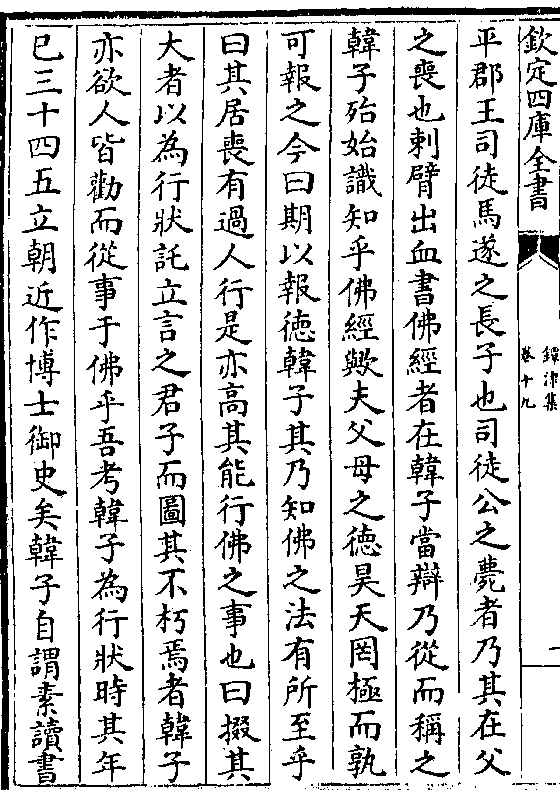 欽定四庫全書
鐔津集
卷十九
一
平郡王司徒馬遂之長子也司徒公之薨者乃其在父
之喪也刺臂出血書佛經者在韓子當辯乃從而稱之
韓子殆始識知乎佛經歟夫父母之徳昊天罔極而孰
可報之今曰期以報徳韓子其乃知佛之法有所至乎
曰其居喪有過人行是亦高其能行佛之事也曰掇其
大者以為行狀託立言之君子而圖其不朽焉者韓子
亦欲人皆勸而從事于佛乎吾考韓子為行狀時其年
已三十四五立朝近作博士御史矣韓子自謂素讀書